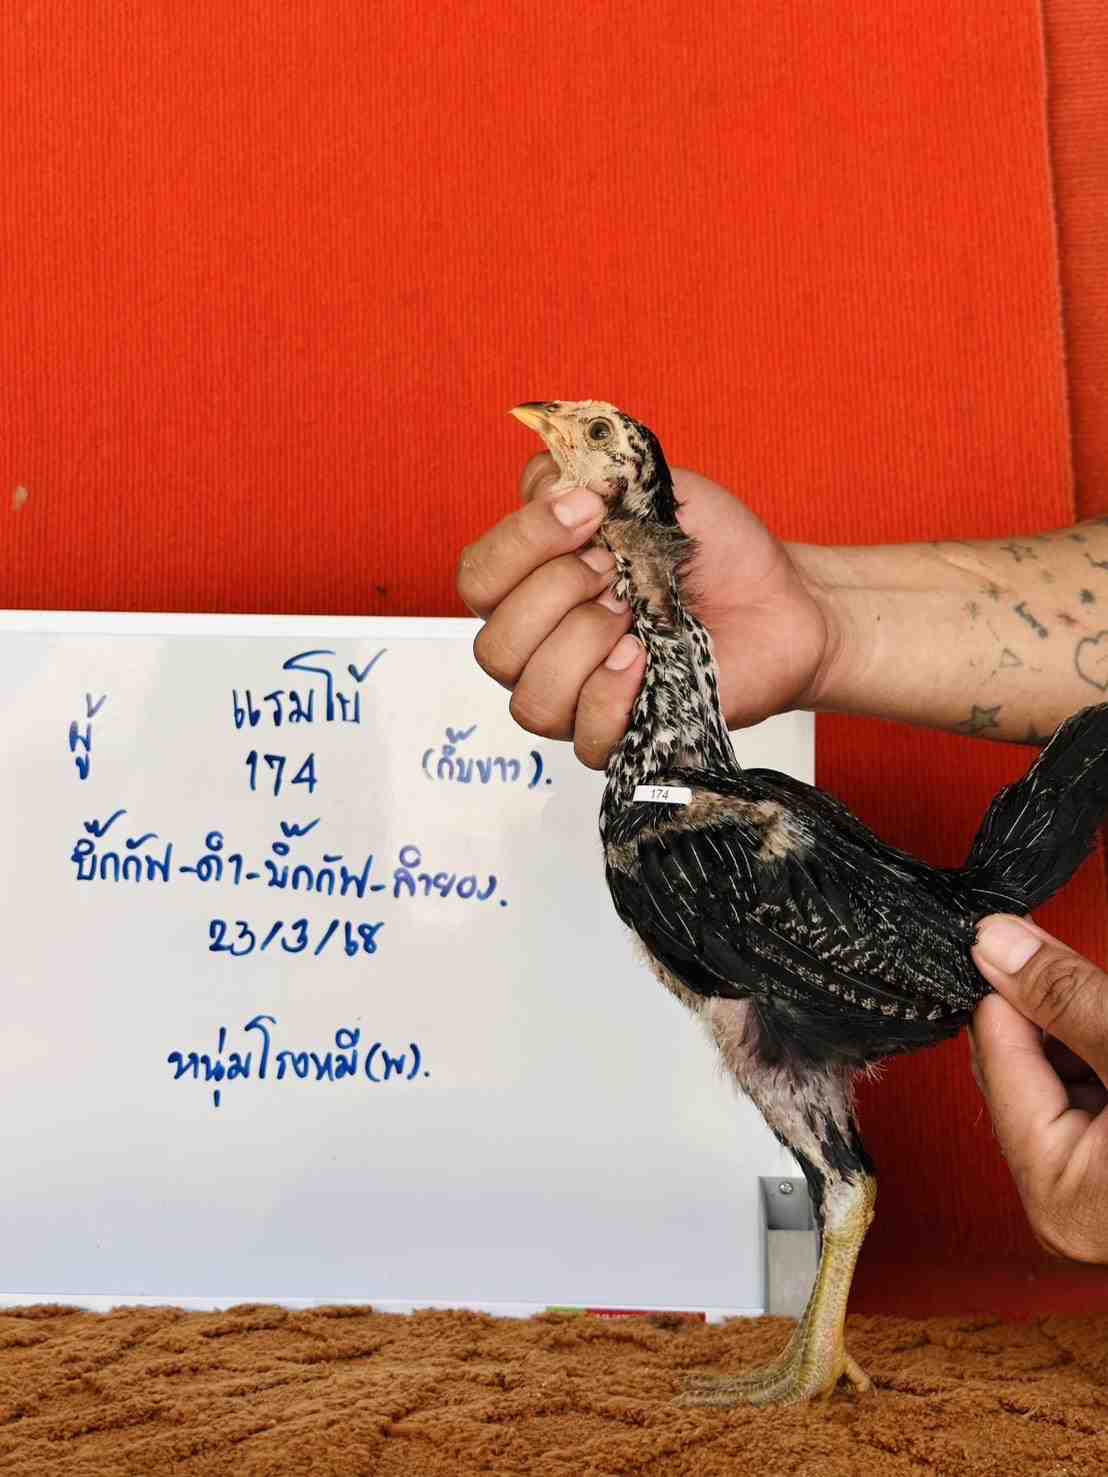 แรมโบ้
ผู้
174 (กิ๊บขาว).
บิ๊กกัฟ-ดำ-บิ๊กกัฟ-ลำยอง.
23/3/68
หนุ่มโรงหมี่(พ).
174